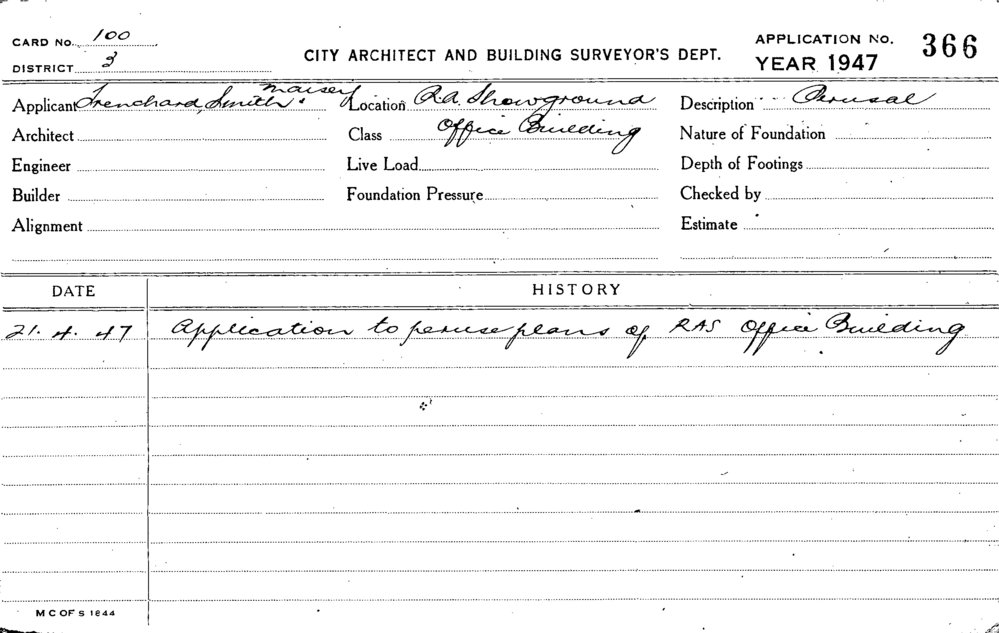 CARD NO. 100
DISTRICT 3
CITY ARCHITECT AND BUILDING SURVEYOR'S DEPT.
APPLICATION NO. 366
YEAR 1947
Applicant Trenchard, Smith & Maisey
Location R.A. Showground
Description Perusal
Architect
Class Office Building
Nature of Foundation
Engineer
Live Load
Depth of Footings
Builder
Foundation Pressure
Checked by
Alignment
Estimate
DATE
HISTORY
21. 4. 47 Application to peruse plans of RAS Office Building
M C OF S 1844